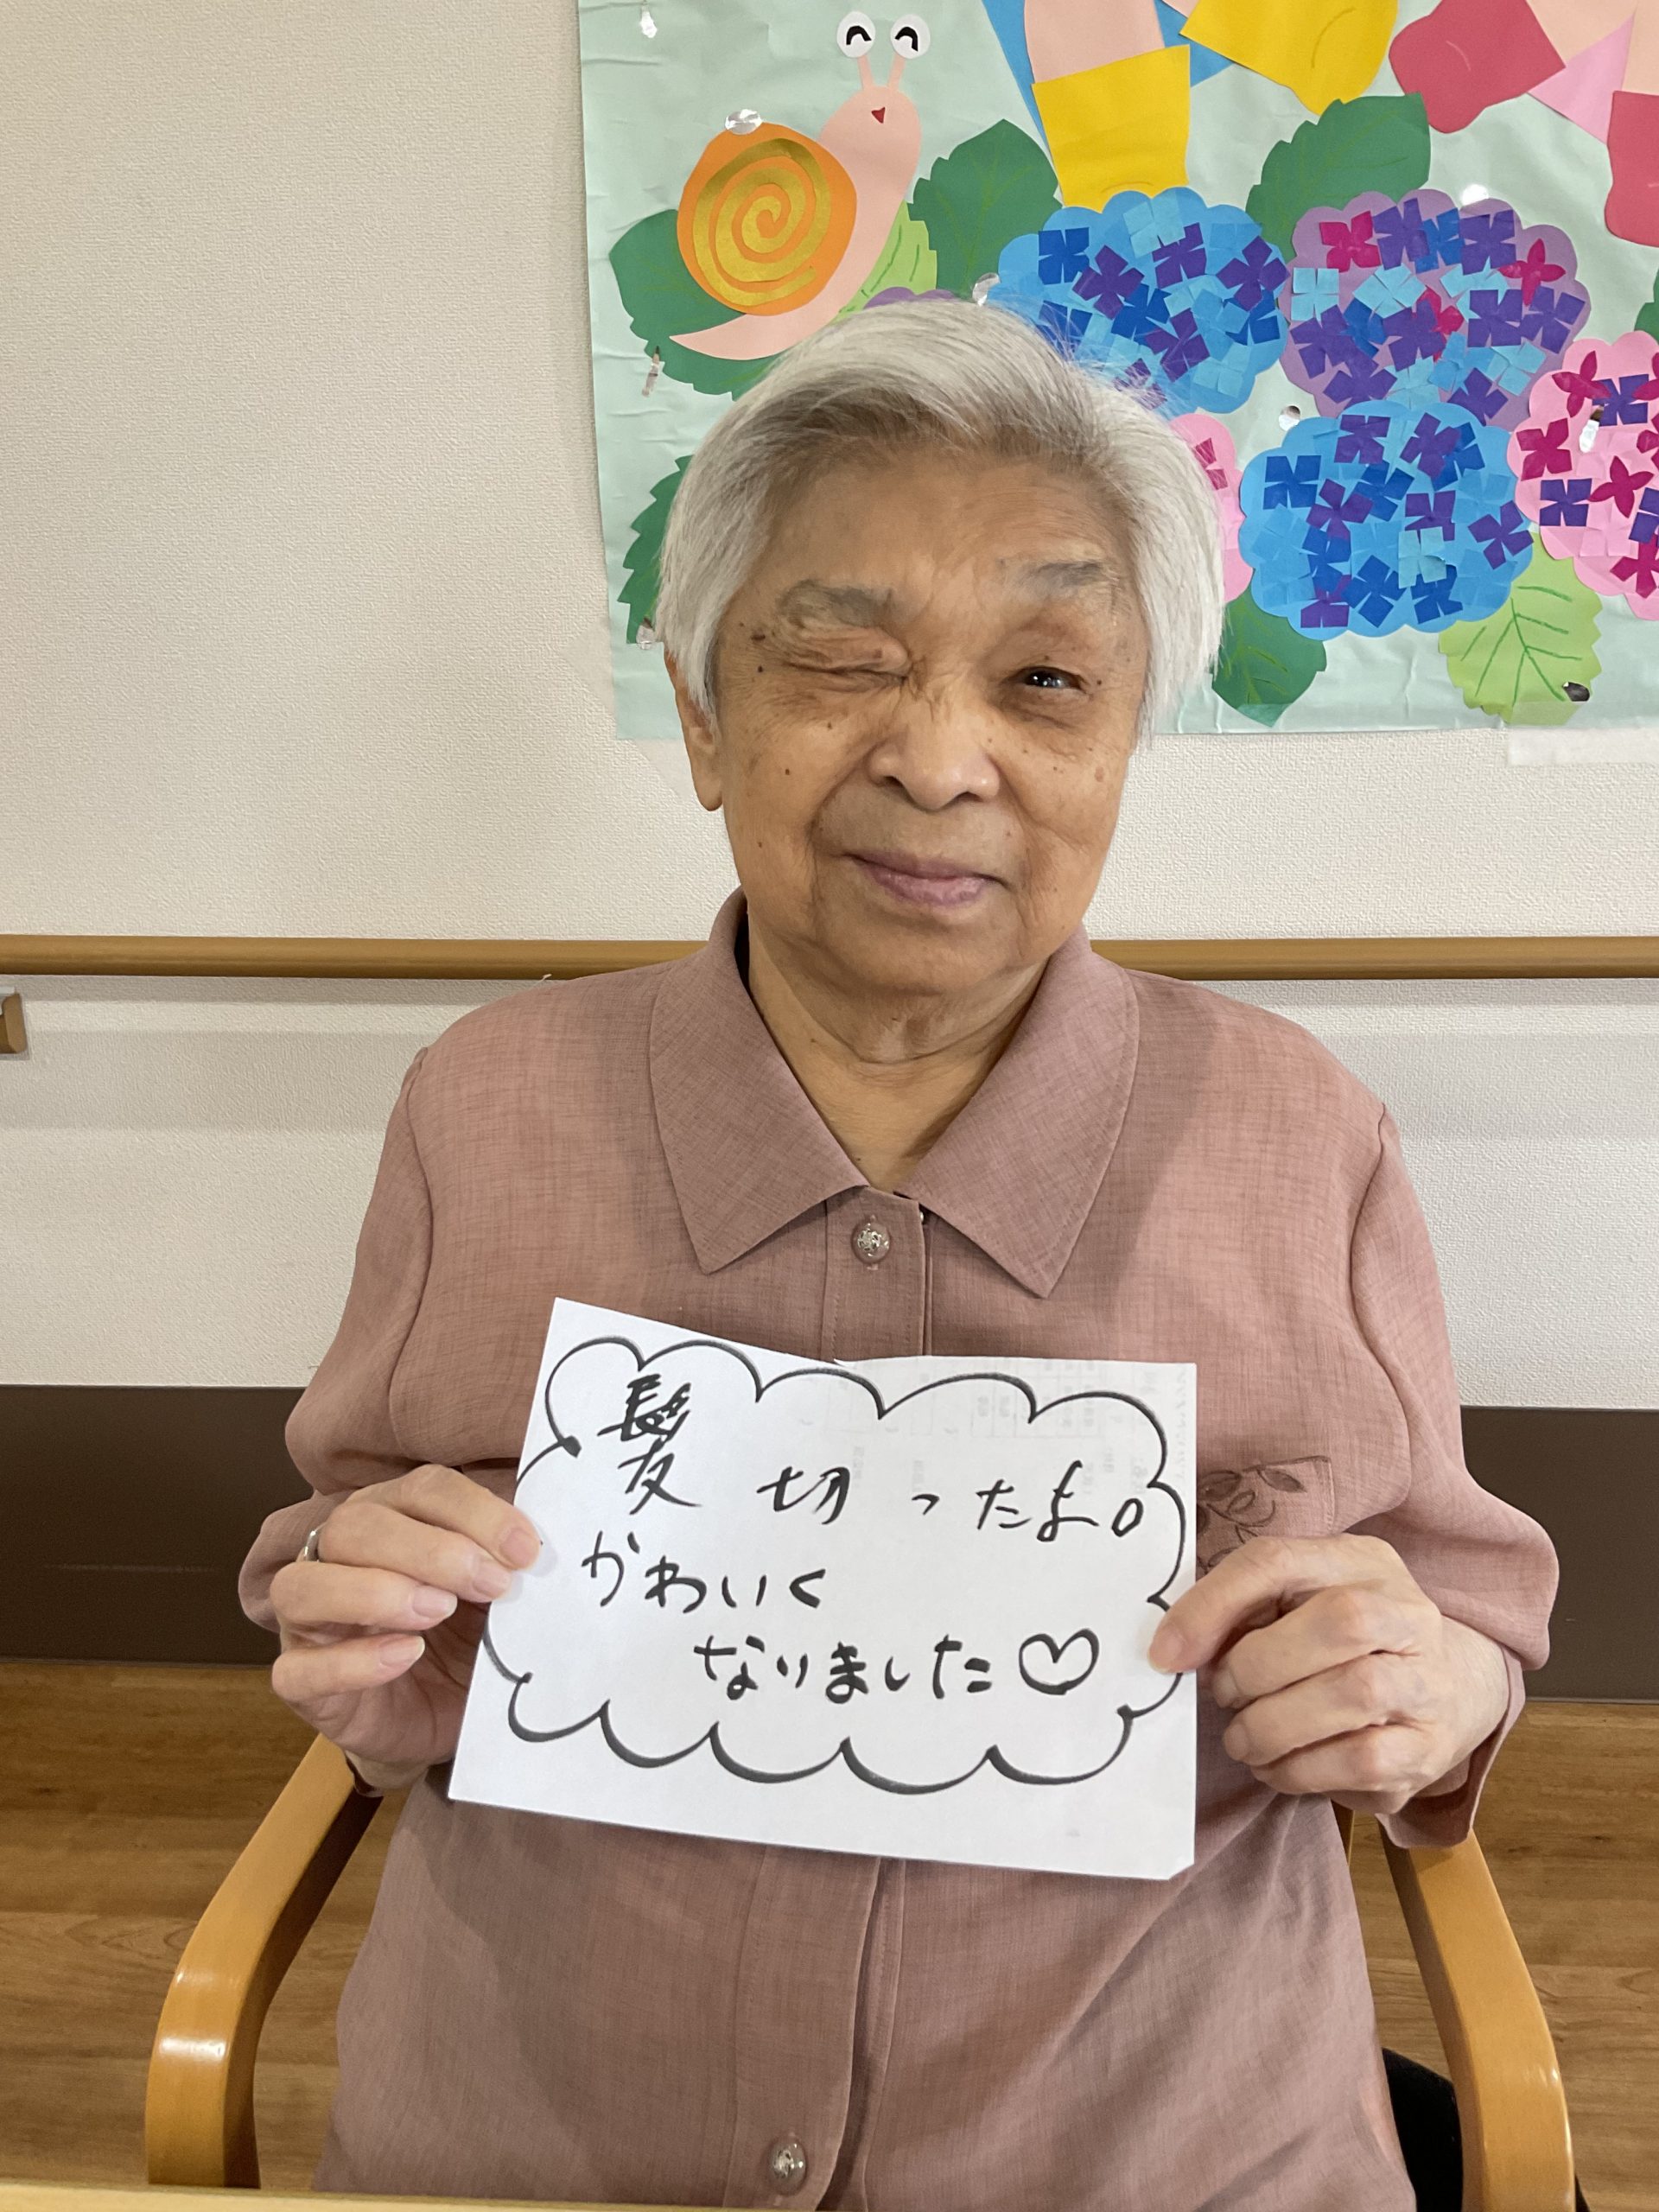 髪切ったよ。
かわいく
なりました♡